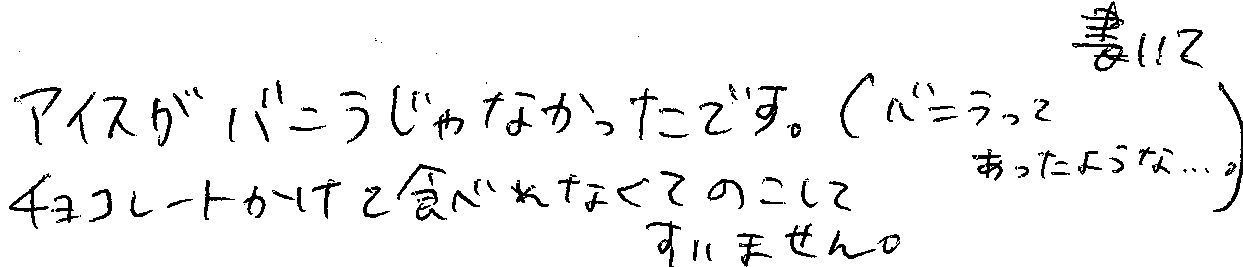 アイスがバニラじゃなかったです。(バニラって書いて
あったような…。)
チョコレートかけて食べれなくてのこして
すいません。